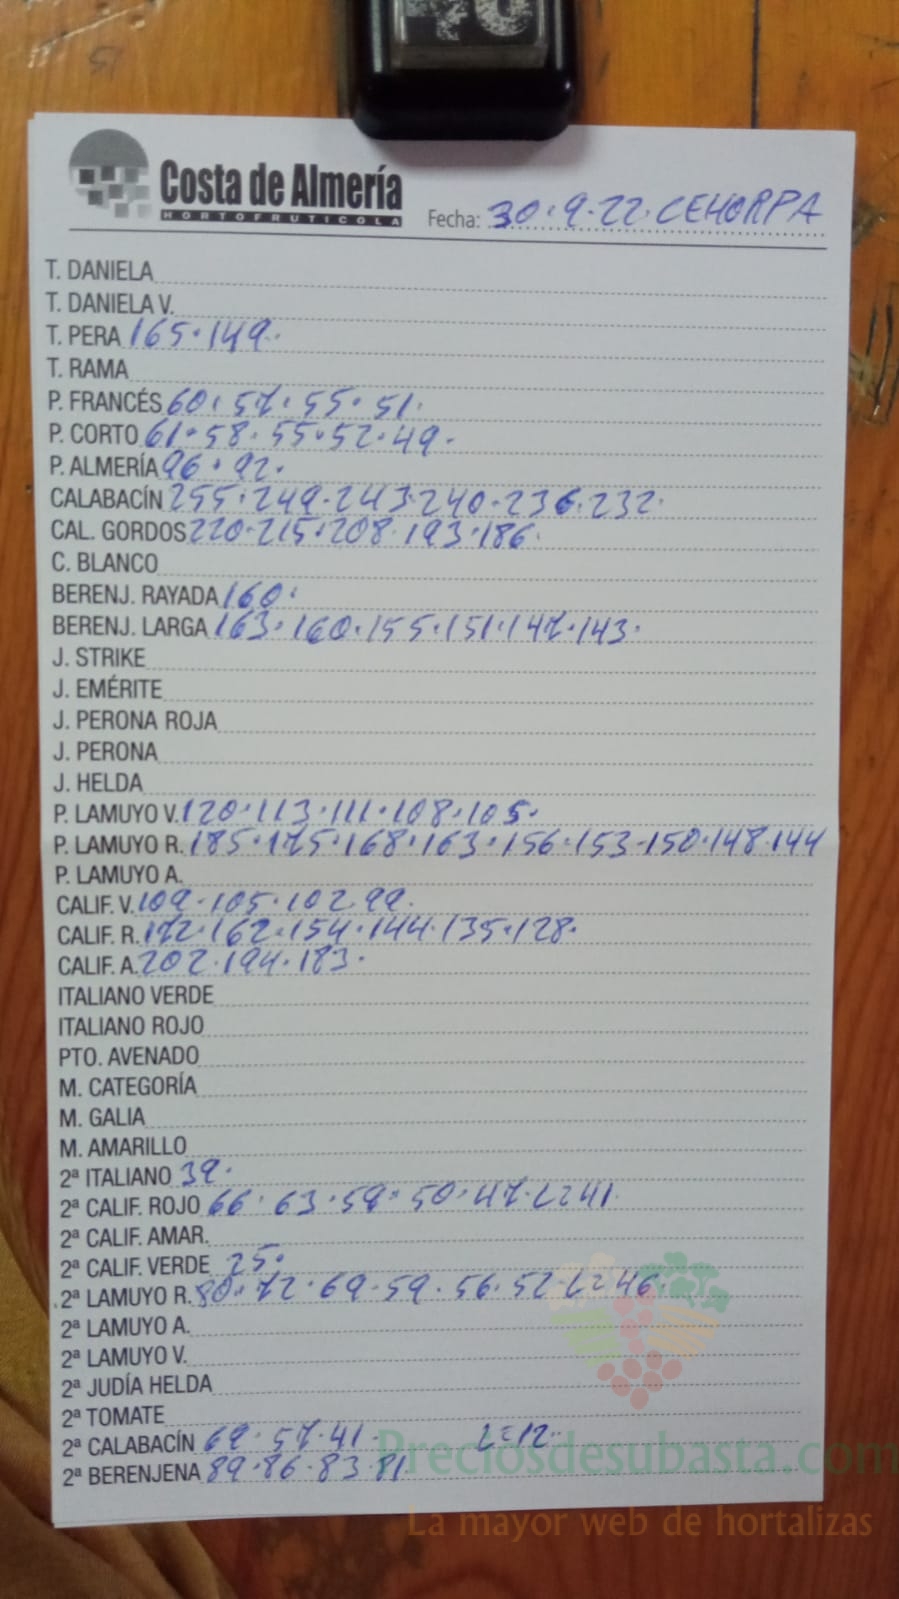 Costa de Almería
HORTOFRUTICOLA
Fecha: 30.9.22. CEHORPA
T. DANIELA
T. DANIELA V.
T. PERA 165.149.
T. RAMA
P. FRANCÉS 60.57.55.51.
P. CORTO 61.58.55.52.49.
P. ALMERÍA 96.92.
CALABACÍN 255.249.243.240.236.232.
CAL. GORDOS 220.215.208.193.186.
C. BLANCO
BERENJ. RAYADA 160.
BERENJ. LARGA 163.160.155.151.147.143.
J. STRIKE
J. EMÉRITE
J. PERONA ROJA
J. PERONA
J. HELDA
P. LAMUYO V. 120.113.111.108.105.
P. LAMUYO R. 185.175.168.163.156.153.150.148.144
P. LAMUYO A.
CALIF. V. 109.105.102.99.
CALIF. R. 172.162.154.144.135.128.
CALIF. A. 202.194.183.
ITALIANO VERDE
ITALIANO ROJO
PTO. AVENADO
M. CATEGORÍA
M. GALIA
M. AMARILLO
2ª ITALIANO 39.
2ª CALIF. ROJO 66.63.59.50.47.L=41.
2ª CALIF. AMAR.
2ª CALIF. VERDE 25.
2ª LAMUYO R. 80.72.69.59.56.52.L=46.
2ª LAMUYO A.
2ª LAMUYO V.
2ª JUDÍA HELDA
2ª TOMATE
2ª CALABACÍN 69.57.41. L=12.
2ª BERENJENA 89.86.83.81
Preciosdesubasta.com
La mayor web de hortalizas